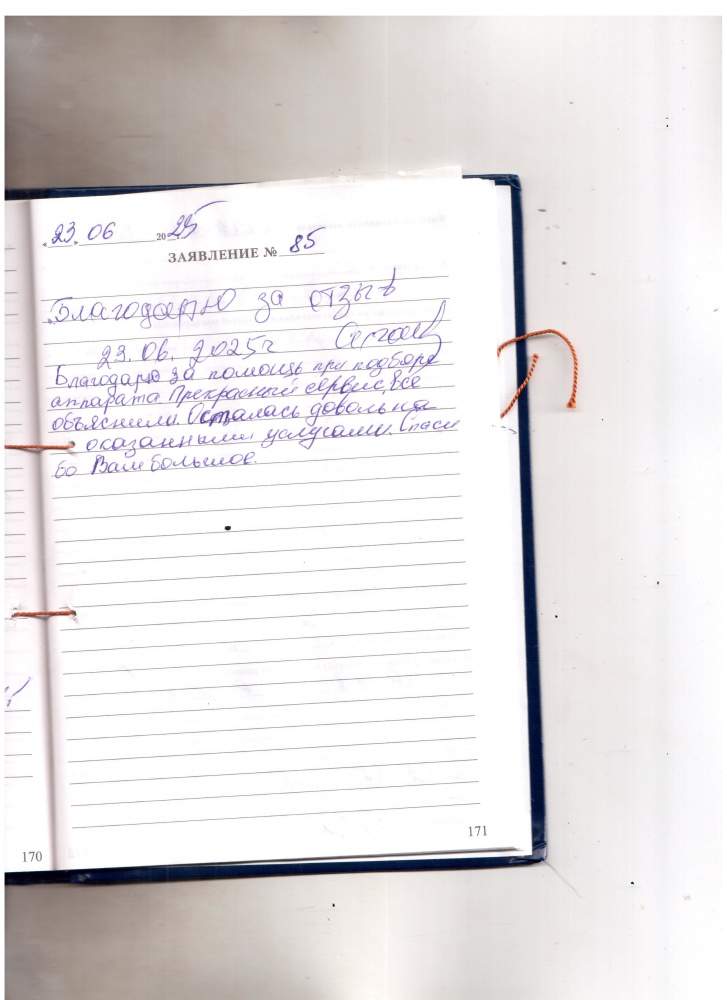 23. 06 2025
ЗАЯВЛЕНИЕ № 85
Благодарю за отзыв
23.06.2025г
Благодарю за помощь при подборе
аппарата. Прекрасный сервис, все
объяснили. Осталась довольна
оказанными услугами. Спаси
бо Вам большое.
170
171